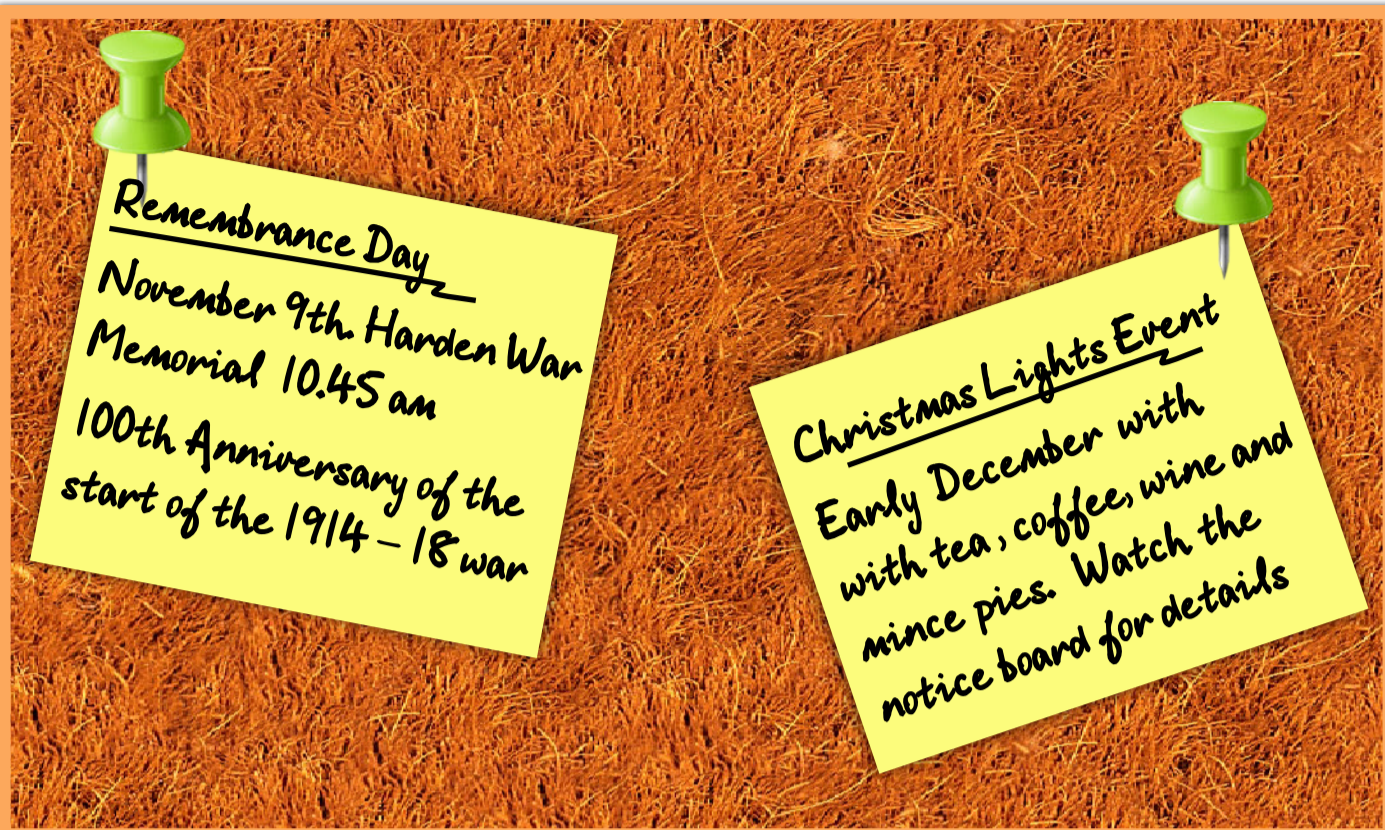 Remembrance Day
November 9th. Harden War
Memorial 10.45 am
100th Anniversary of the
start of the 1914 – 18 war
Christmas Lights Event
Early December with
with tea, coffee, wine and
mince pies. Watch the
notice board for details